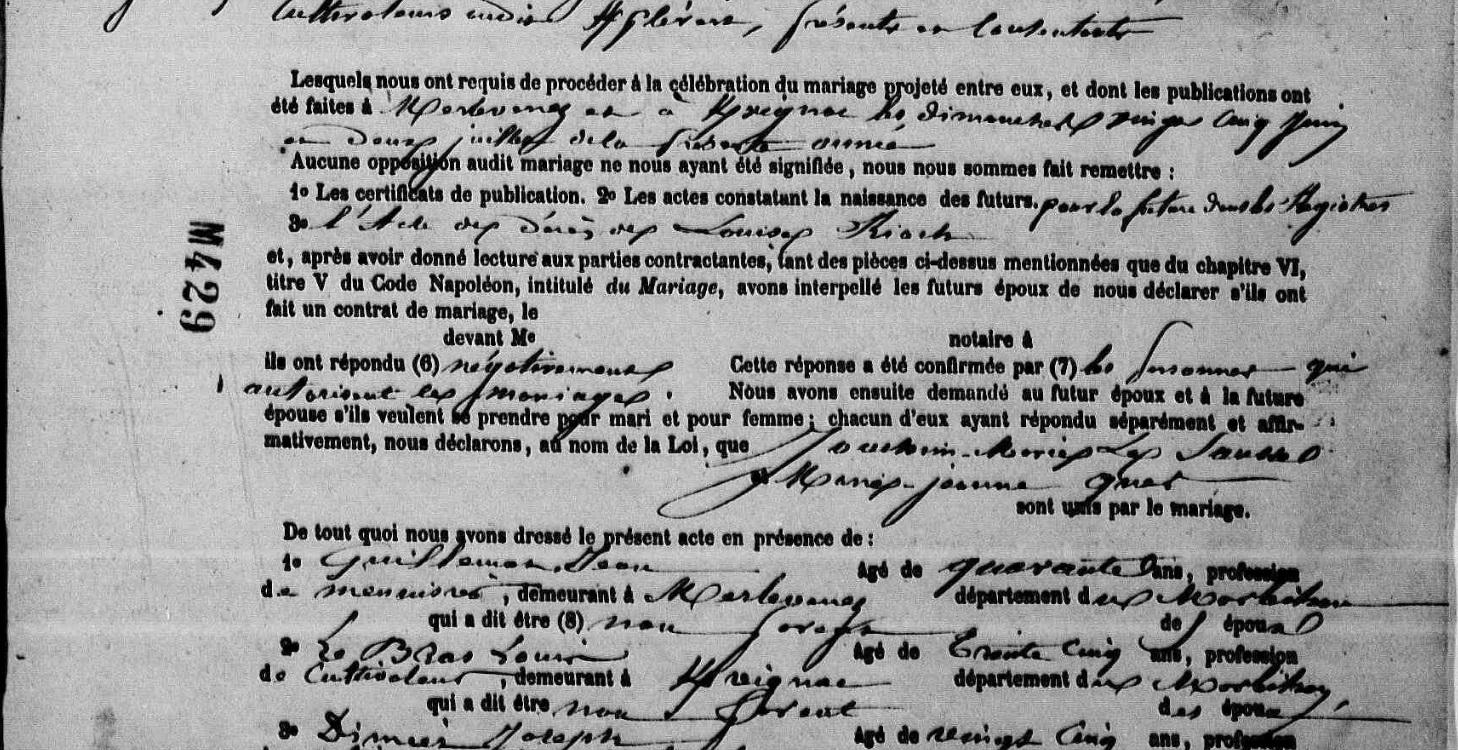 Cultivateurs audit présents et consentants
Lesquels nous ont requis de procéder à la célébration du mariage projeté entre eux, et dont les publications ont
été faites à Merlevenez et à les dimanches vingt cinq juin
et deux juillet de la présente année
Aucune opposition audit mariage ne nous ayant été signifiée, nous nous sommes fait remettre :
1o Les certificats de publication. 2o Les actes constatant la naissance des futurs. pour la future dans les Registres
3o l'Acte de décès de Louise
et, après avoir donné lecture aux parties contractantes, tant des pièces ci-dessus mentionnées que du chapitre VI,
titre V du Code Napoléon, intitulé du Mariage, avons interpellé les futurs époux de nous déclarer s'ils ont
fait un contrat de mariage, le
devant Me notaire à
ils ont répondu (6) négativement Cette réponse a été confirmée par (7) les personnes qui
autorisent le mariage. Nous avons ensuite demandé au futur époux et à la future
épouse s'ils veulent se prendre pour mari et pour femme ; chacun d'eux ayant répondu séparément et affir-
mativement, nous déclarons, au nom de la Loi, que Marie Le
Marie-jeanne
sont unis par le mariage.
De tout quoi nous avons dressé le présent acte en présence de :
1o Jean âgé de quarante ans, profession
de menuisier, demeurant à Merlevenez département du Morbihan
qui a dit être (8) non de l'époux
2o Le Bras Louis âgé de trente cinq ans, profession
de Cultivateur, demeurant à département du Morbihan
qui a dit être non parent des époux
3o Joseph âgé de vingt cinq ans, profession
M429